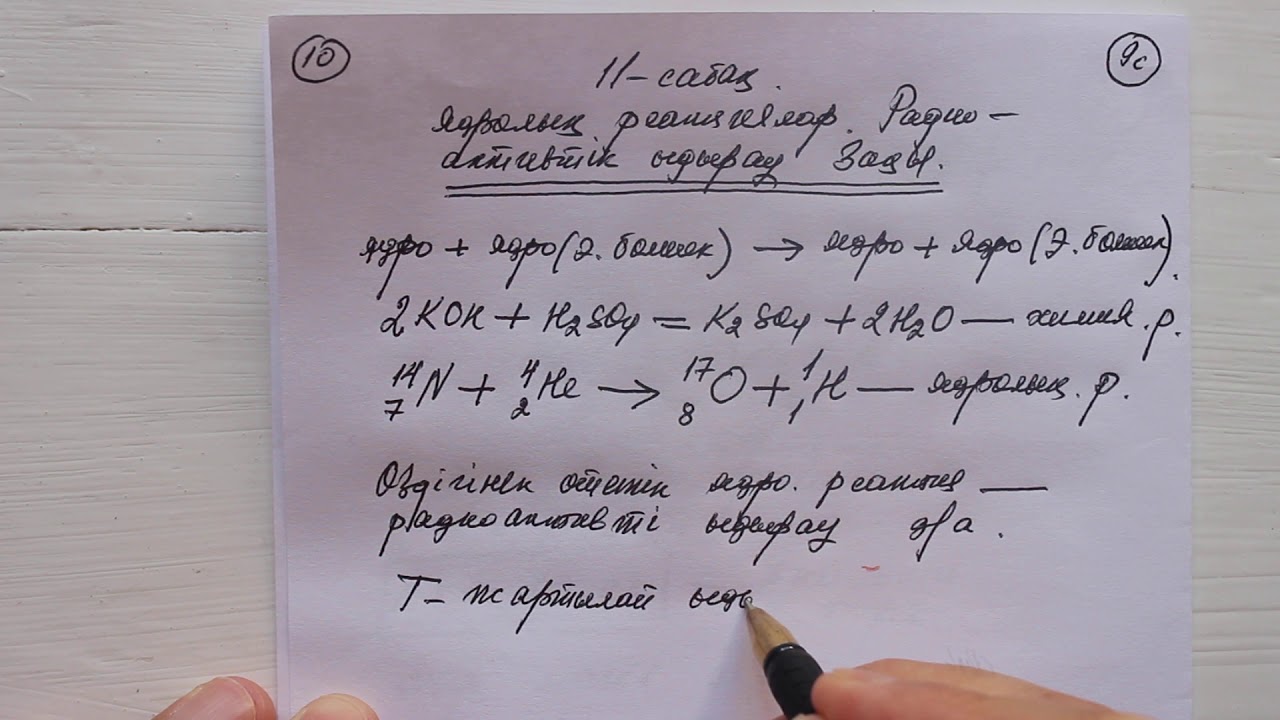 10
9c
11-сабақ.
Ядролық реакциялар. Радио-
активтік ыдырау заңы.
ядро + ядро (э. бөлшек) → ядро + ядро (э. бөлшек).
2KOH + H₂SO₄ = K₂SO₄ + 2H₂O — химия. р.
¹⁴₇N + ⁴₂He → ¹⁷₈O + ¹₁H — ядролық. р.
Өздігінен өтетін ядро. реакция —
радиоактивті ыдырау д/а.
T - жартылай ыды